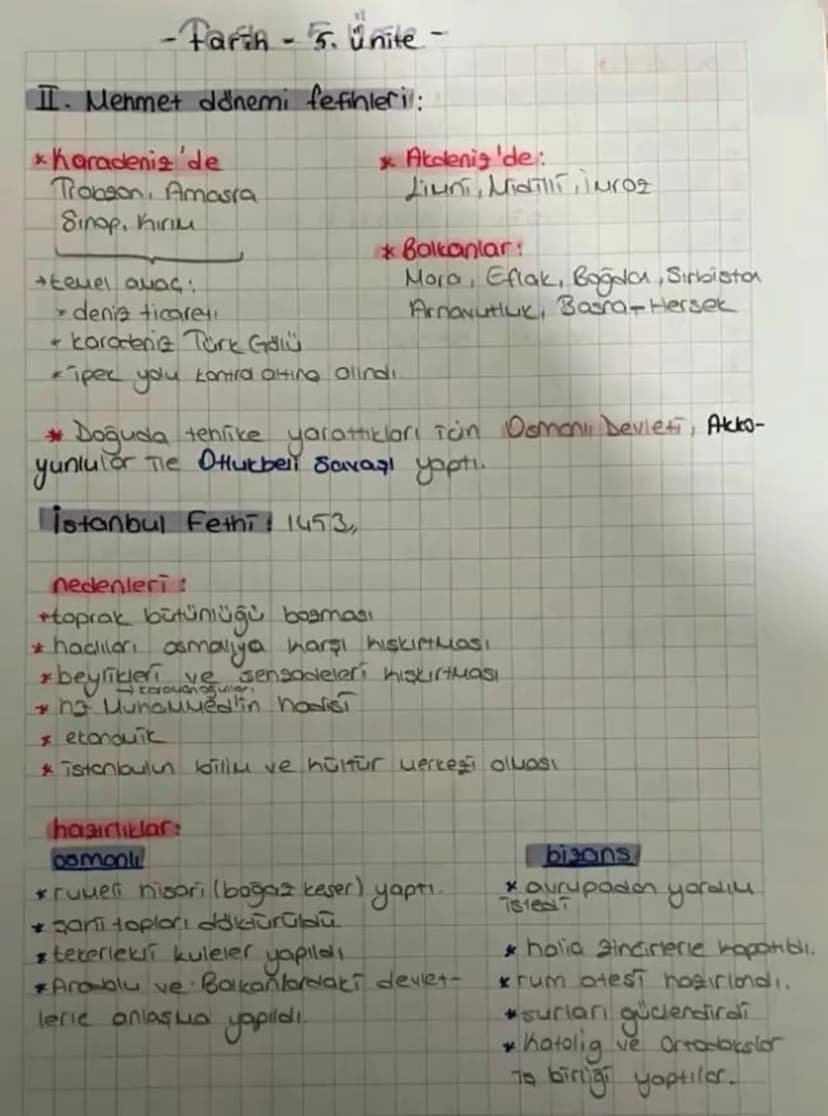 - Tarih - 5. Ünite -
II. Mehmet dönemi fetihleri:
* Karadeniz'de
Trabzon, Amasra
Sinop, Kırım
→ temel amaç:
* deniz ticareti
* karadeniz Türk Gölü
* ipek yolu kontrol altına alındı.
* Akdeniz'de:
Limni, Midilli, İmroz
* Balkanlar:
Mora, Eflak, Boğdan, Sırbistan
Arnavutluk, Basna-Hersek
* Doğuda tehlike yarattıkları için Osmanlı Devleti, Akko-
yunlular ile Otlukbeli Savaşı yaptı.
İstanbul Fethi: 1453,,
nedenleri:
* toprak bütünlüğü bozması
* haçlıları osmalıya karşı kışkırtması
* beylikleri ve şehzadeleri kışkırtması
→ karamanoğulları
* hz Muhammed'in hadisi
* ekonomik
* istanbulun bilim ve kültür merkezi olması
hazırlıklar:
osmanlı
* rumeli hisarı (boğaz keser) yaptı.
* şahi topları döktürüldü
* tekerlekli kuleler yapıldı
* Anadolu ve Balkanlardaki devlet-
lerle anlaşma yapıldı.
bizans
* avrupadan yardım
istedi
* halic zincirlerle kapatıldı.
* rum ateşi hazırlandı.
* surları güçlendirdi
* katolig ve Ortodokslar
iş birliği yaptılar.